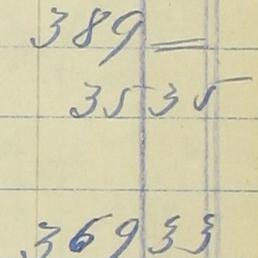 389 =
35 35
369 33